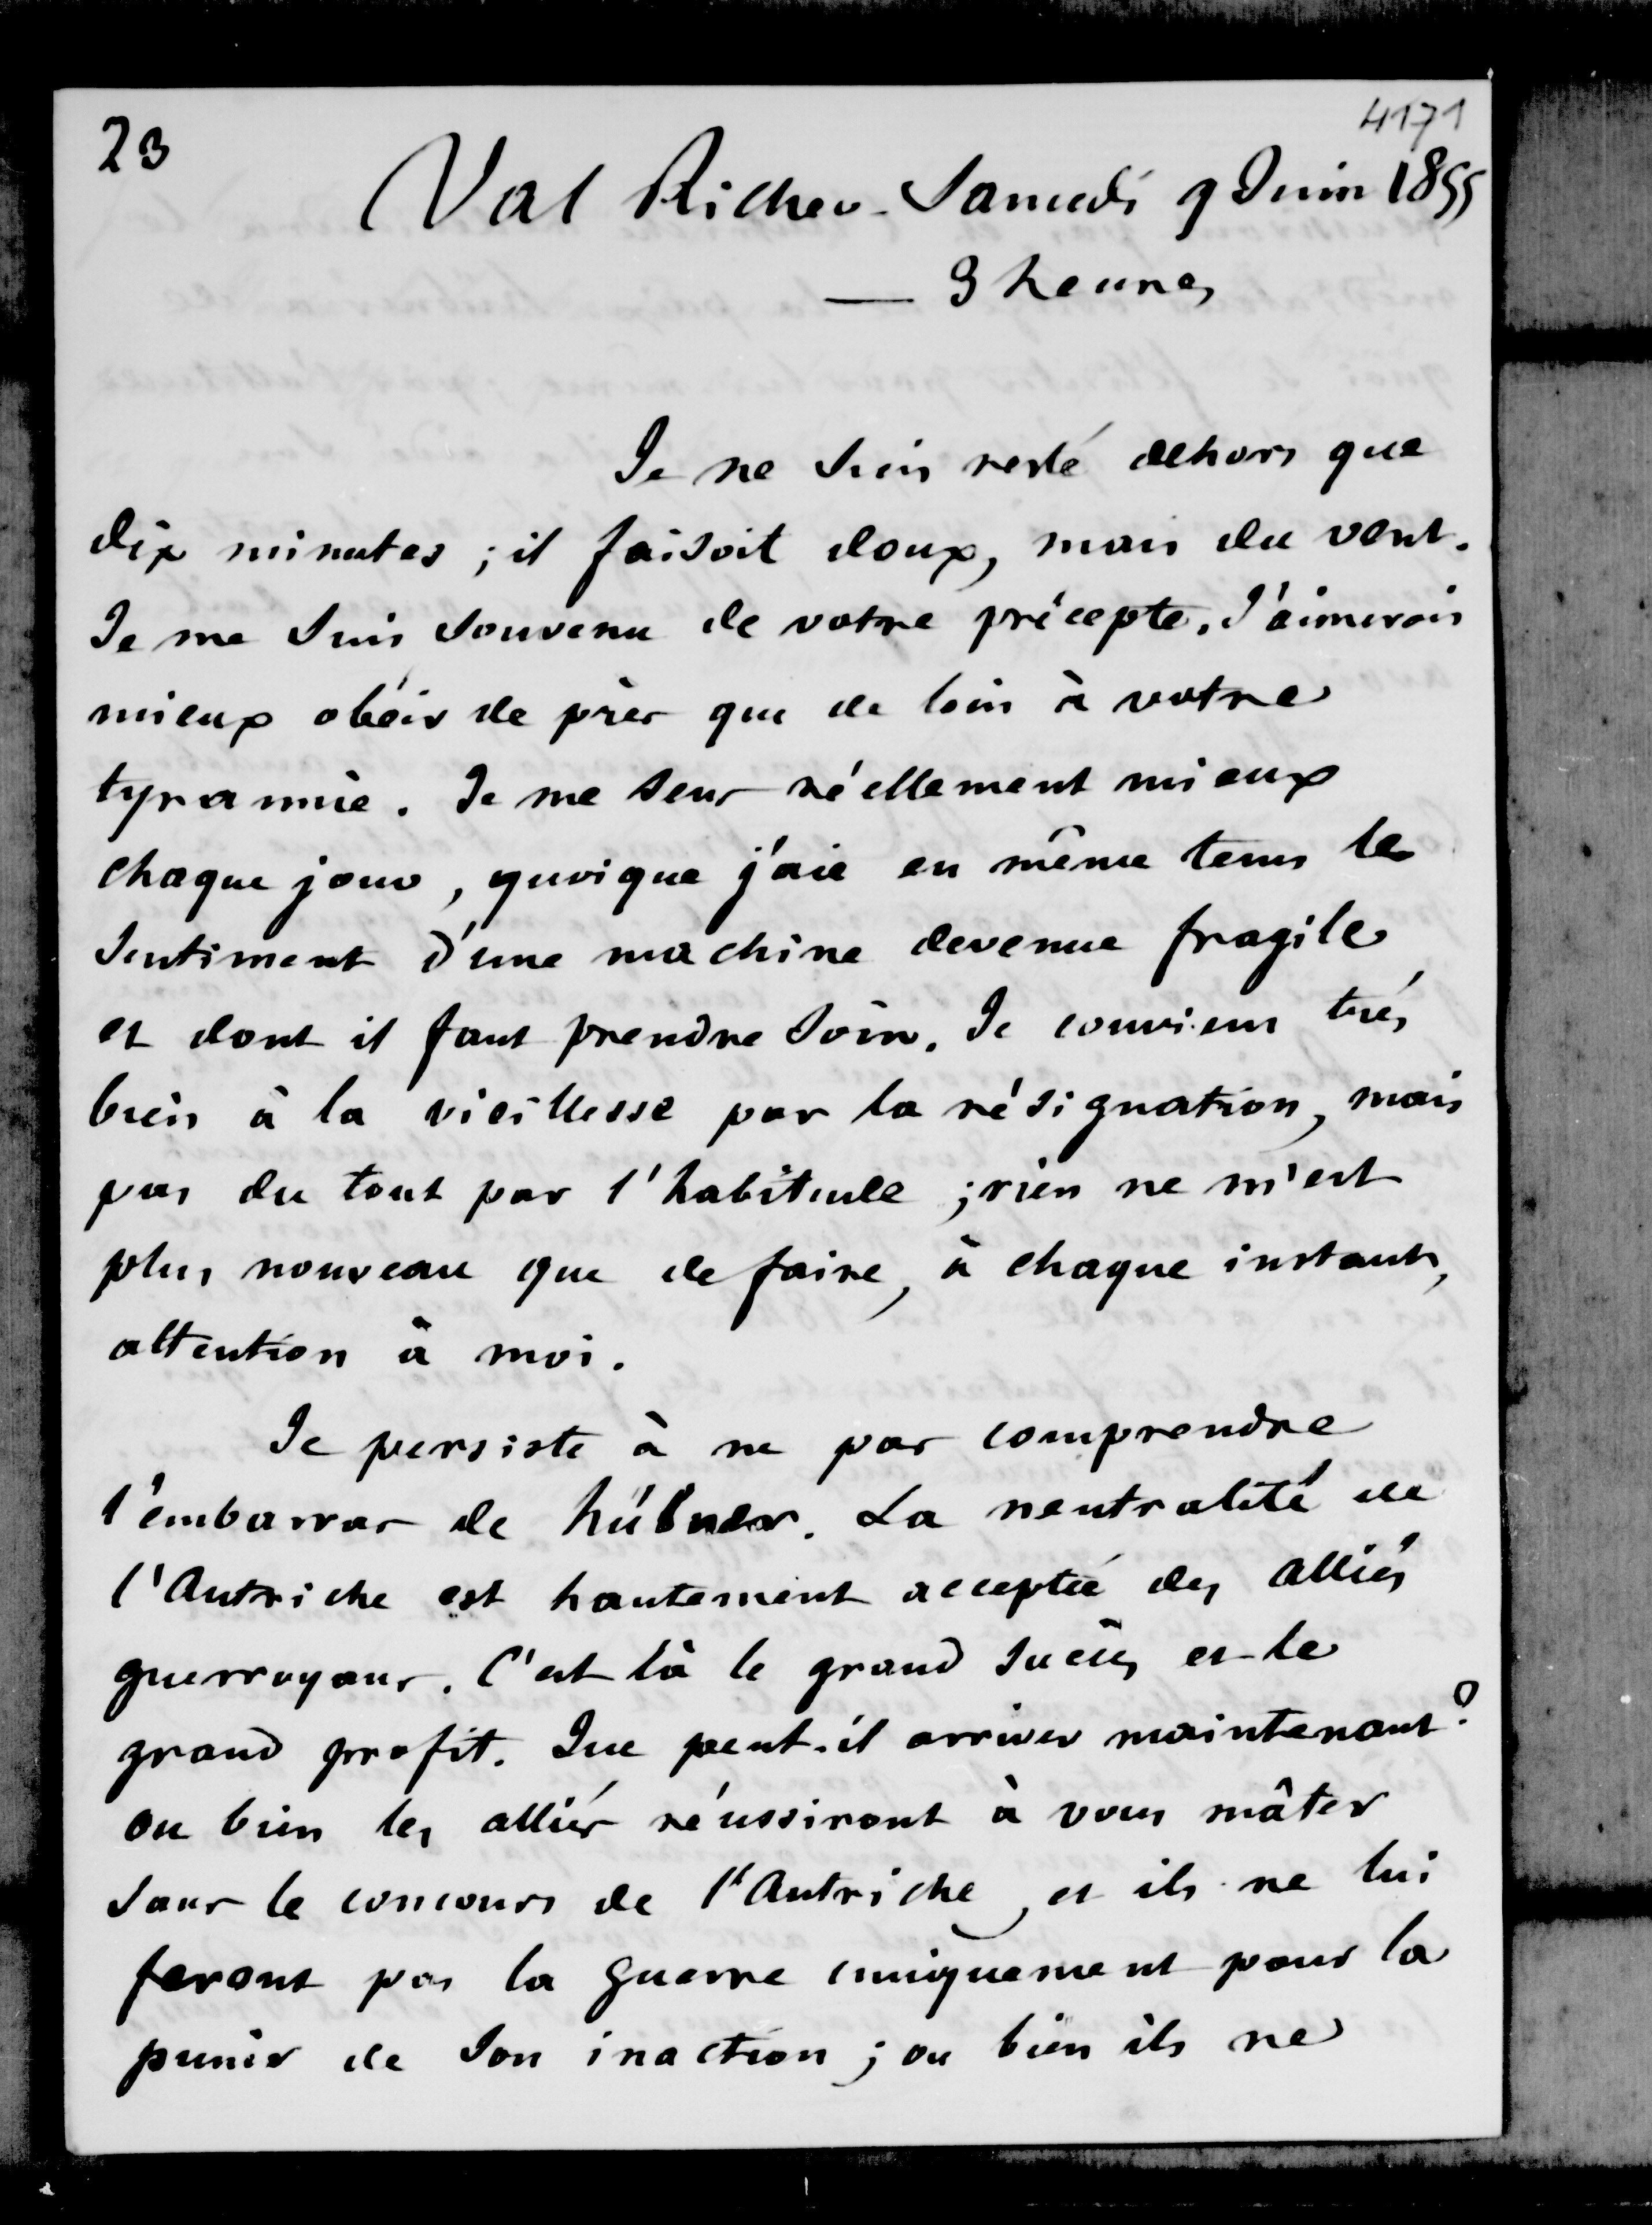 23
4171
Val Richer - Samedi 9 Juin 1855
— 9 heures
Je ne suis resté dehors que
dix minutes ; il faisoit doux, mais du vent.
Je me suis souvenu de votre précepte. J'aimerois
mieux obéir de près que de loin à votre
tyrannie. Je me sens réellement mieux
chaque jour, quoique j'aie en même tems le
sentiment d'une machine devenue fragile
et dont il faut prendre soin. Je conviens très
bien à la vieillesse par la résignation, mais
pas du tout par l'habitude ; rien ne m'est
plus nouveau que de faire, à chaque instant,
attention à moi.
Je persiste à ne pas comprendre
l'embarras de hübner. La neutralité de
l'Autriche est hautement acceptée des alliés
guerroyans. C'est là le grand succès et le
grand profit. Que peut-il arriver maintenant ?
ou bien les alliés réussiront à vous mâter
sans le concours de l'Autriche, et ils ne lui
feront pas la guerre uniquement pour la
punir de son inaction ; ou bien ils ne